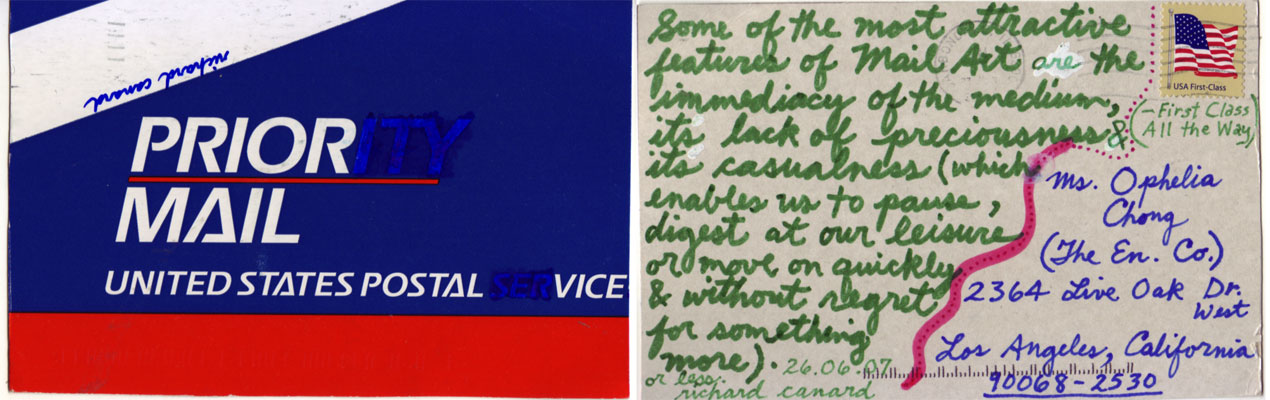 richard canard
PRIORITY
MAIL
UNITED STATES POSTAL SERVICE
Some of the most attractive
features of Mail Art are the
immediacy of the medium,
its lack of preciousness &
its casualness (which
enables us to pause,
digest at our leisure
or move on quickly
& without regret
for something
more).
or less.
26.06.07
richard canard
USA First-Class
(-First Class
All the Way)
Ms. Ophelia
Chong
(The En. Co.)
2364 Live Oak Dr.
West
Los Angeles, California
90068-2530